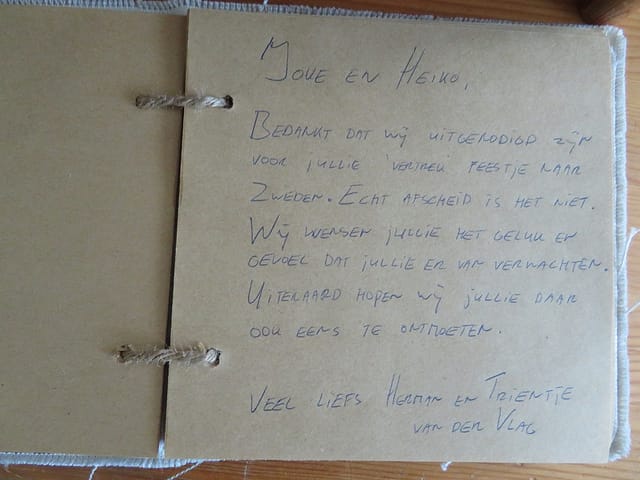 Joke en Heiko,
Bedankt dat wij uitgenodigd zijn
voor jullie 'vertrek' feestje naar
Zweden. Echt afscheid is het niet.
Wij wensen jullie het geluk en
gevoel dat jullie er van verwachten.
Uiteraard hopen wij jullie daar
ook eens te ontmoeten.
Veel liefs Herman en Trientje
van der Vlag